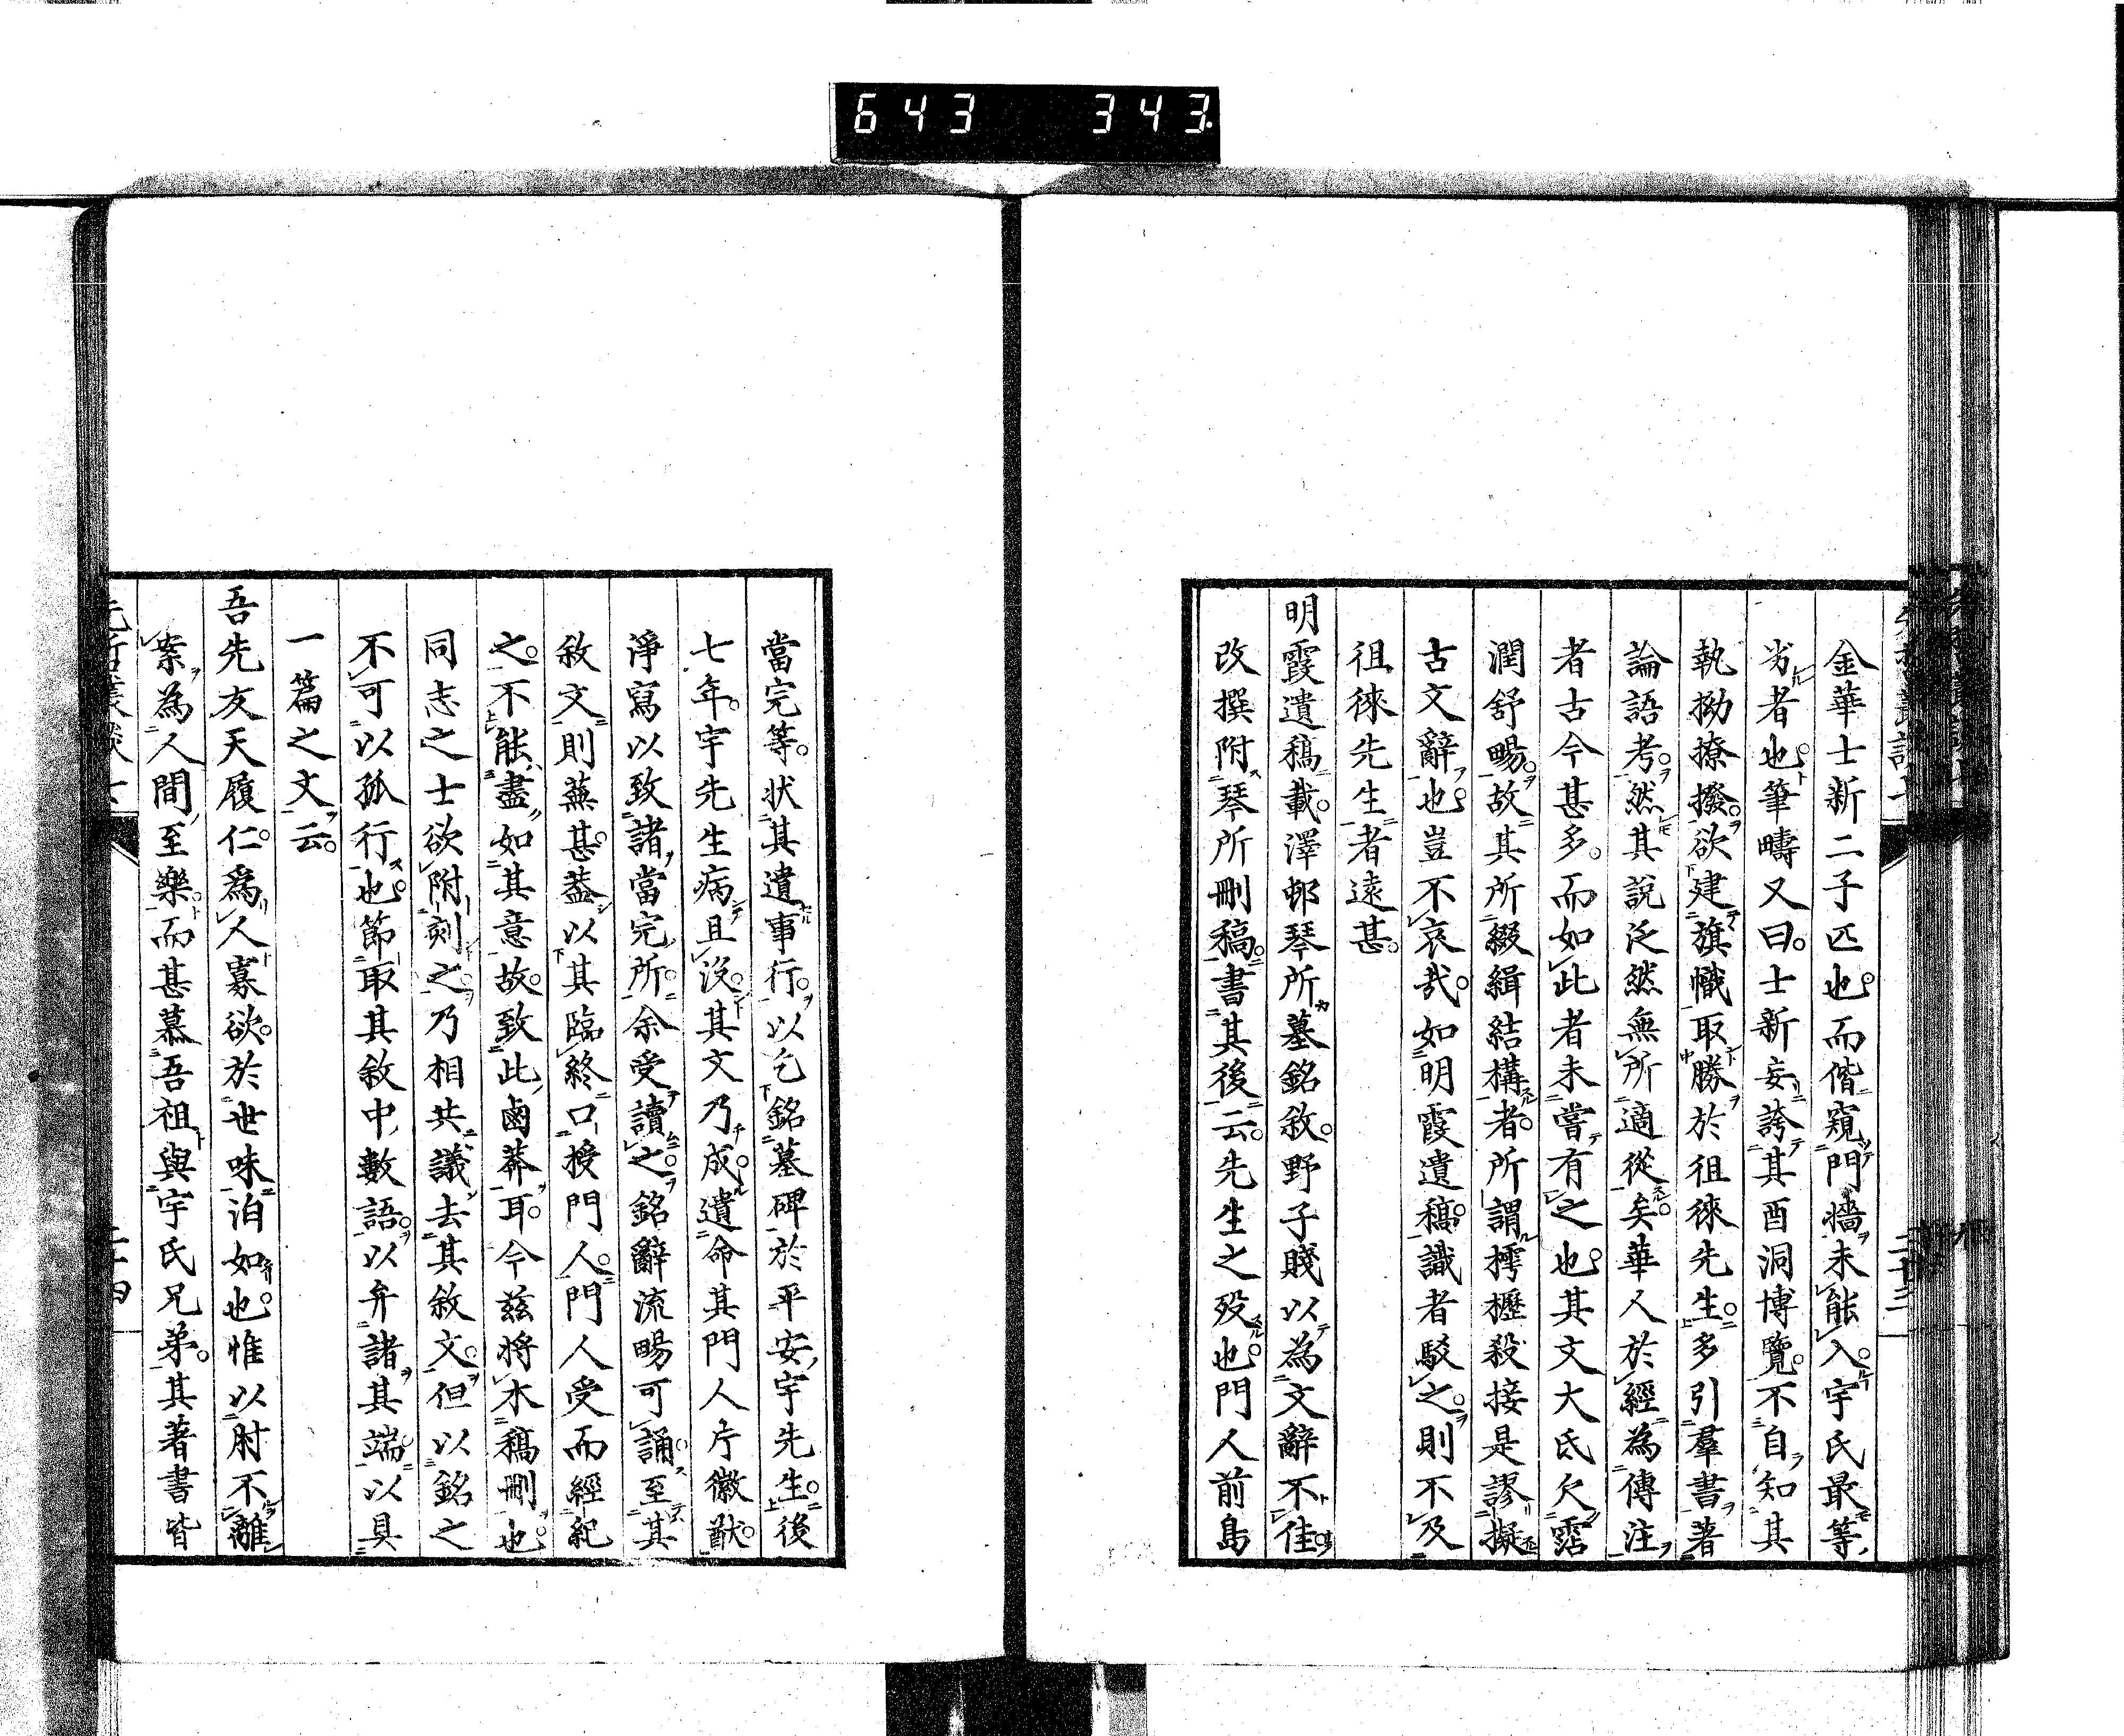 643 343.
金華士新二子匹也。而偕窺門牆未能入。宇氏最等
劣者也。筆疇又曰。士新妄誇其酉洞博覽。不自知其
執拗撩撥。欲建旗幟取勝於徂徠先生。多引羣書著
論語考。然其說泛然無所適從矣。華人於經為傳注
者古今甚多。而如此者未嘗有之也。其文大氐欠霑
潤舒暢。故其所綴緝結構者。所謂樗櫪殺接是謬擬
古文辭也。豈不哀哉。如明霞遺稿。識者駁之。則不及
徂徠先生者遠甚。
明霞遺稿。載澤邨琴所墓銘敘。野子賤以為文辭不佳。
改撰附琴所刪稿。書其後云。先生之歿也。門人前島
當完等。状其遺事行。以乞銘墓碑於平安宇先生。後
七年。宇先生病且沒。其文乃成。遺命其門人片徽猷。
淨寫以致諸當完所。余受讀之。銘辭流暢可誦。至其
敘文則蕪甚。葢以其臨終口授門人。門人受而經紀
之。不能盡如其意。故致此鹵莽耳。今茲將木稿刪也。
同志之士欲附刻之。乃相共議去其敘文。但以銘之
不可以孤行也。節取其敘中數語。以弁諸其端。以具
一篇之文云。
吾先友天履仁。爲人寡欲。於世味泊如也。惟以肘不離
案。為人間至樂。而甚慕吾祖與宇氏兄弟。其著書皆